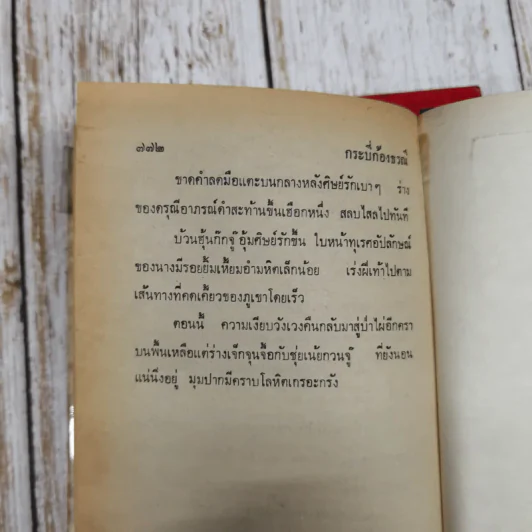 ๗๗๒ กระบี่ก้องธรณี
ขาดคำลดมือแตะบนกลางหลังศิษย์รักเบาๆ ร่าง
ของดรุณีอาภรณ์ดำสะท้านขึ้นเฮือกหนึ่ง สลบไสลไปทันที
บ้วนฮุ้นกี๊กจู๊อุ้มศิษย์รักขึ้น ใบหน้าทุเรศอัปลักษณ์
ของนางมีรอยยิ้มเหี้ยมอำมหิตเล็กน้อย เร่งฝีเท้าไปตาม
เส้นทางที่คดเคี้ยวของภูเขาโดยเร็ว
ตอนนี้ ความเงียบวังเวงคืนกลับมาสู่ป่าไผ่อีกครา
บนพื้นเหลือแต่ร่างเจ็กจุนจื้อกับซุ่ยเน้ยกวนจู๊ ที่ยังนอน
แน่นิ่งอยู่ มุมปากมีคราบโลหิตเกรอะกรัง